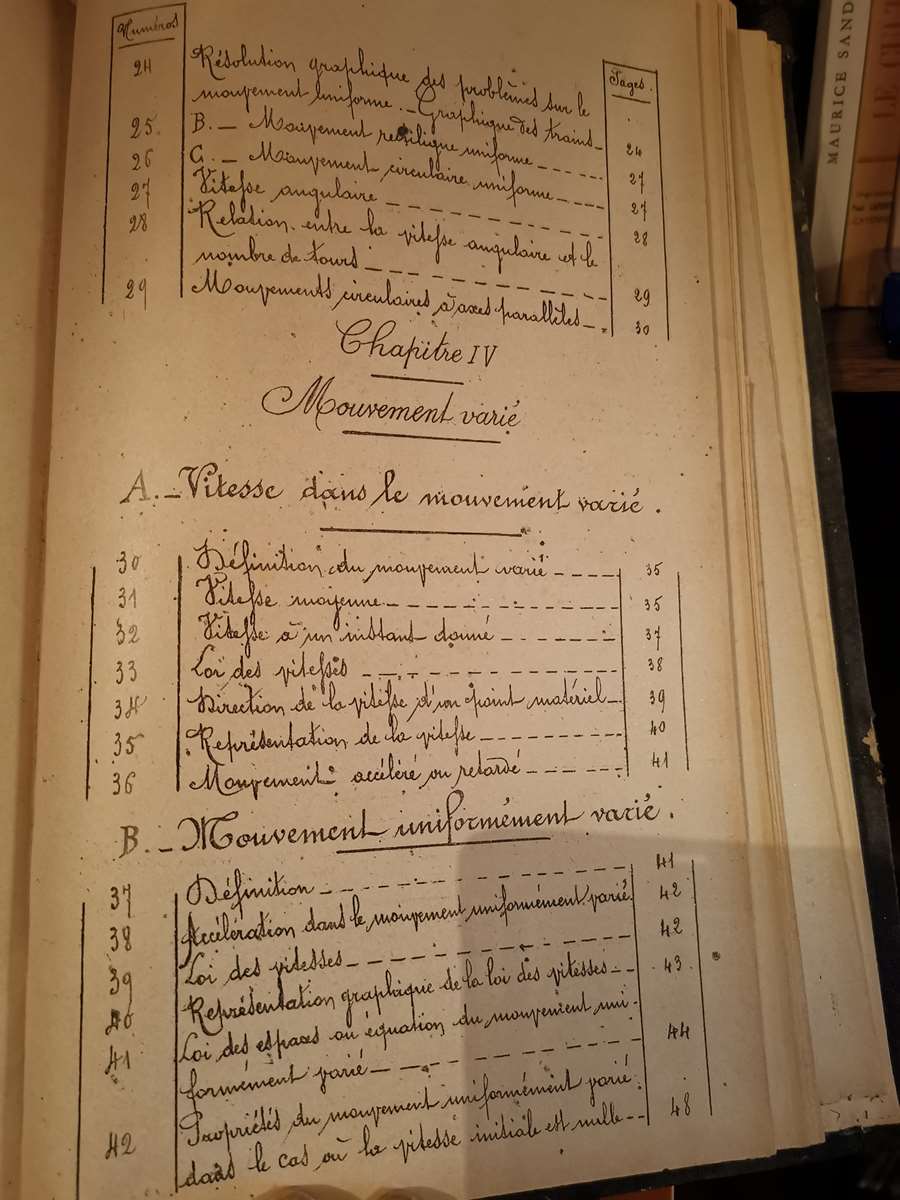 Numéros
Pages.
24 Résolution graphique des problèmes sur le
mouvement uniforme. _ Graphique des trains _ 24
25 B. _ Mouvement rectiligne uniforme _ 27
26 C. _ Mouvement circulaire uniforme _ 27
27 Vitesse angulaire _ 28
28 Relation entre la vitesse angulaire et le
nombre de tours _ 29
29 Mouvements circulaires à axes parallèles _ 30
Chapitre IV
Mouvement varié
A. _ Vitesse dans le mouvement varié.
30 Définition du mouvement varié _ 35
31 Vitesse moyenne _ 35
32 Vitesse à un instant donné _ 37
33 Loi des vitesses _ 38
34 Direction de la vitesse d'un point matériel _ 39
35 Représentation de la vitesse _ 40
36 Mouvement accéléré ou retardé _ 41
B. _ Mouvement uniformément varié.
37 Définition _ 41
38 Accélération dans le mouvement uniformément varié 42
39 Loi des vitesses _ 42
40 Représentation graphique de la loi des vitesses _ 43
41 Loi des espaces ou équation du mouvement uni-
formément varié _ 44
42 Propriétés du mouvement uniformément varié
dans le cas où la vitesse initiale est nulle _ 48
MAURICE SAND